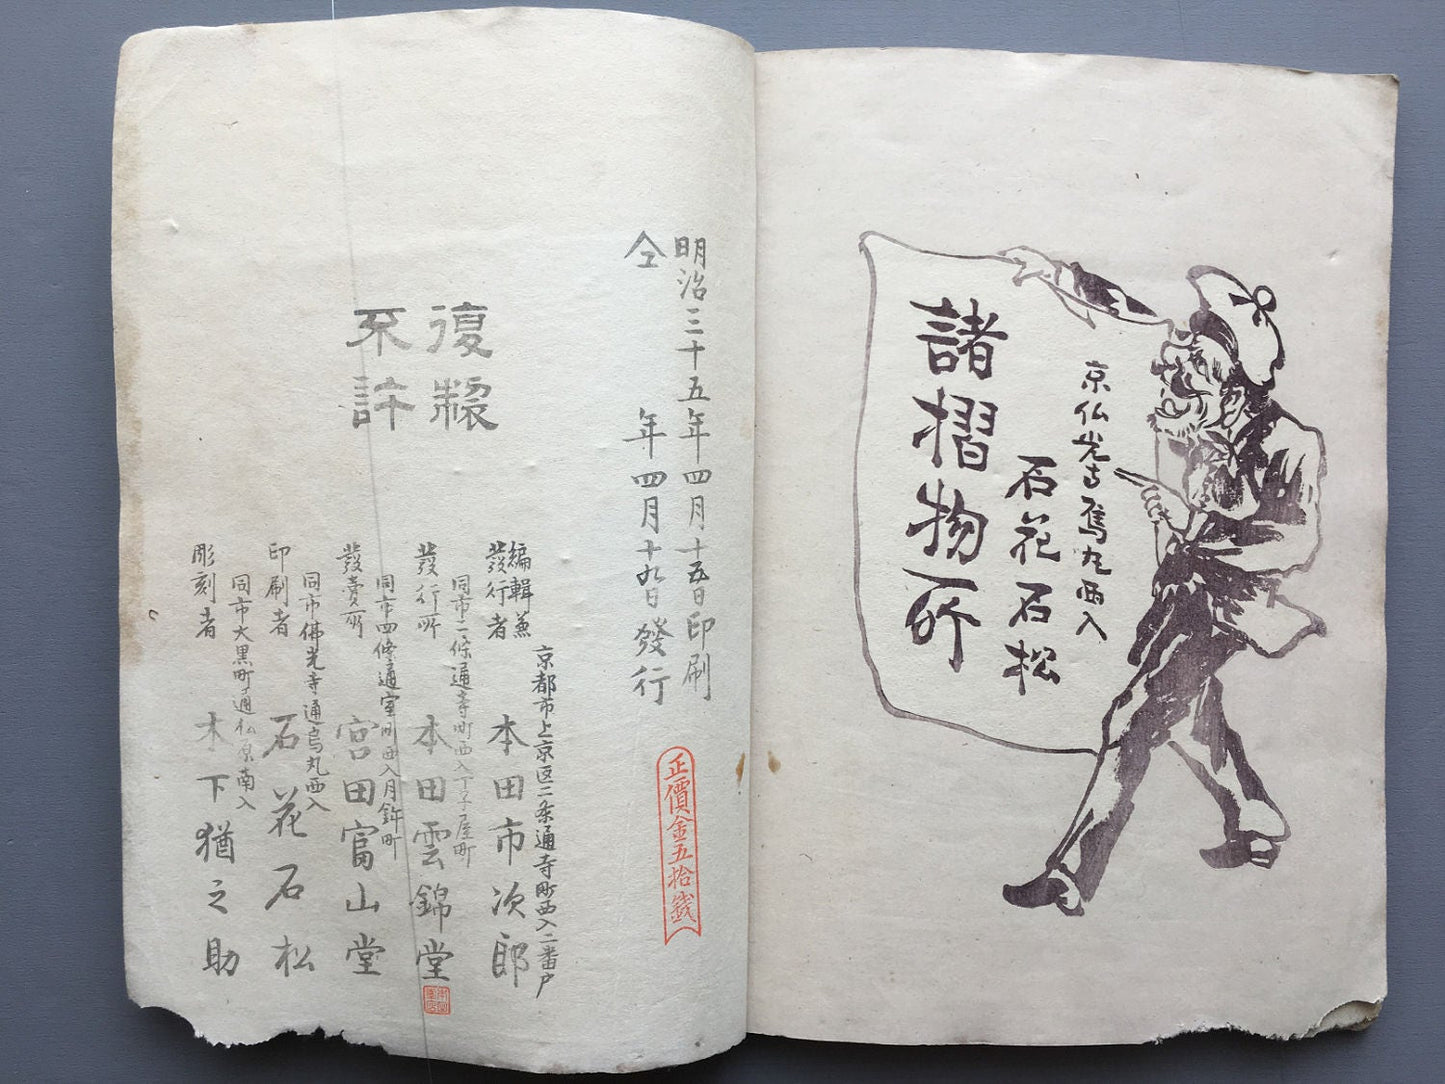 諸摺物所
石花石松
京仏光寺烏丸西入
明治三十五年四月十五日印刷
仝年四月十九日發行
正價金五拾錢
復製
不許
京都市上京区二条通寺町西入二番戸
編輯兼
發行者
本田市次郎
同市二條通寺町西入丁子屋町
發行所
本田雲錦堂
同市四條通室町西入月鉾町
發賣所
宮田富山堂
同市佛光寺通烏丸西入
印刷者
石花石松
同市大黒町通仏原南入
彫刻者
木下猶之助